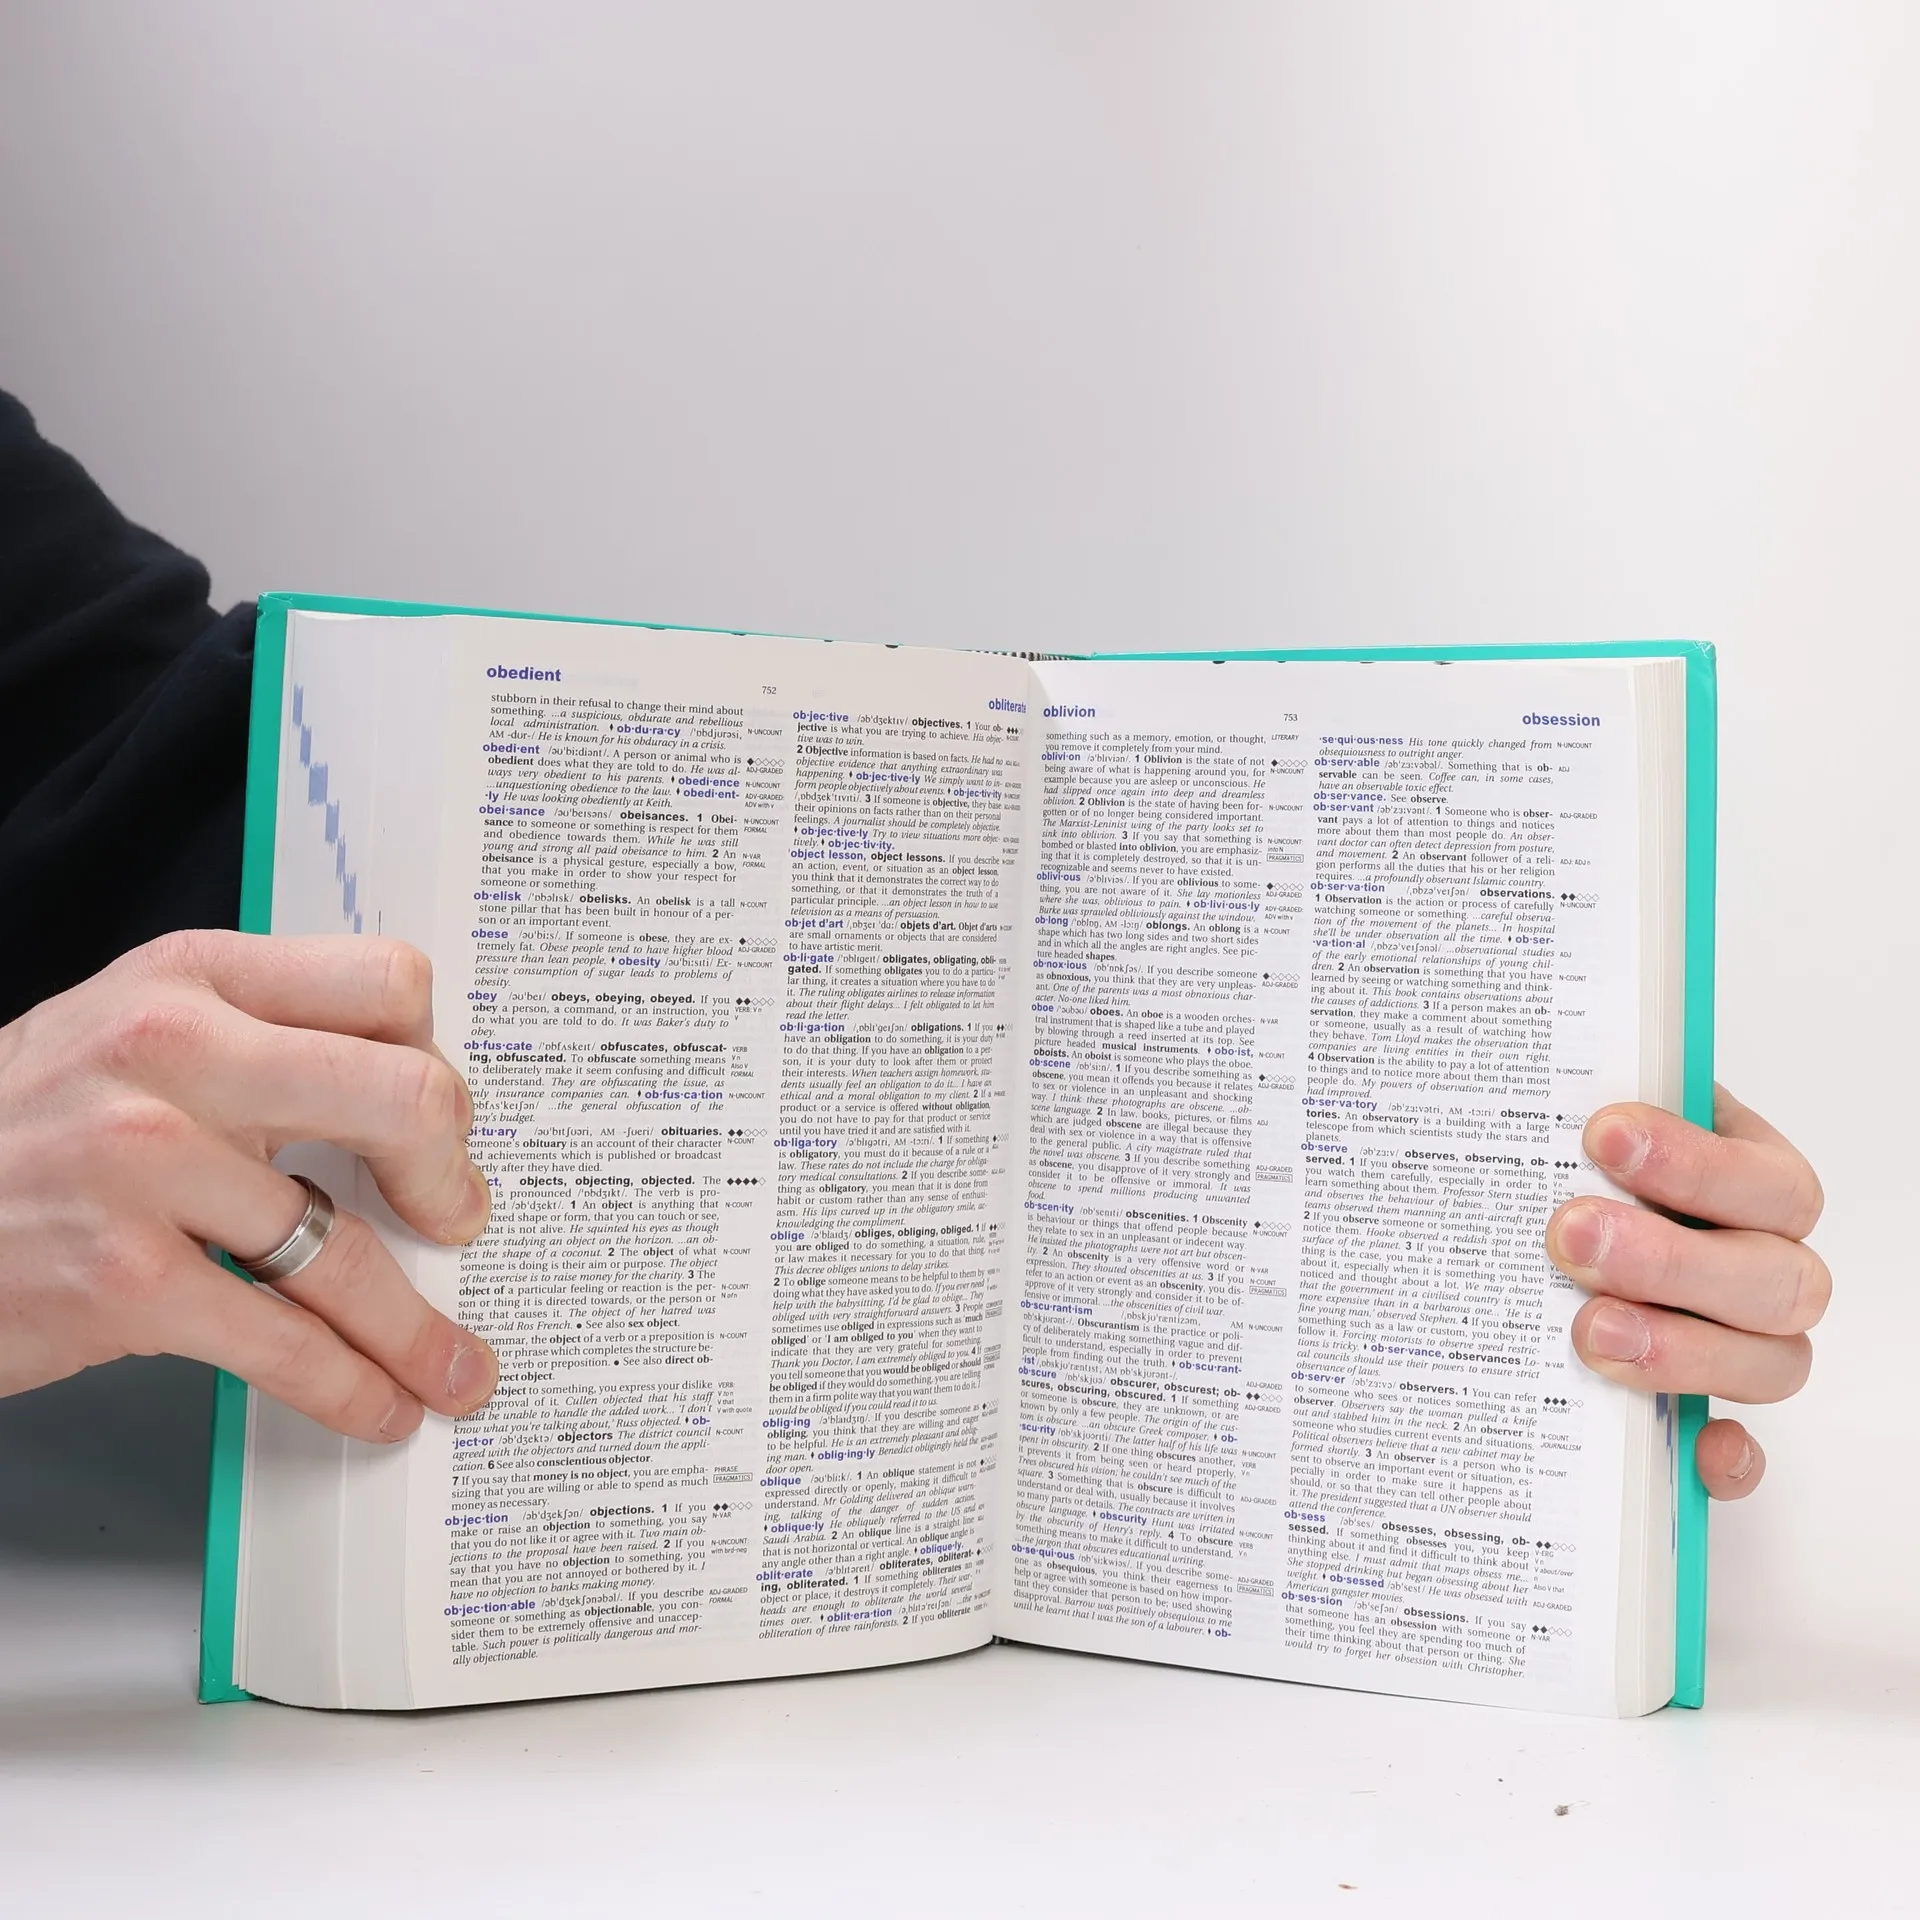 obedient
752
obliterate
stubborn in their refusal to change their mind about
something. ...a suspicious, obdurate and rebellious
local administration. ♦ ob·du·ra·cy /ˈɒbdjʊrəsi, N-UNCOUNT
AM -dur-/ He is known for his obduracy in a crisis.
obedi·ent /əʊˈbiːdiənt/. A person or animal who is ◆◇◇◇◇
obedient does what they are told to do. He was al- ADJ-GRADED
ways very obedient to his parents. ♦ obedi·ence N-UNCOUNT
...unquestioning obedience to the law. ♦ obedi·ent- ADV-GRADED:
·ly He was looking obediently at Keith. ADV with v
obei·sance /əʊˈbeɪsəns/ obeisances. 1 Obei- N-UNCOUNT
sance to someone or something is respect for them FORMAL
and obedience towards them. While he was still
young and strong all paid obeisance to him. 2 An N-VAR
obeisance is a physical gesture, especially a bow, FORMAL
that you make in order to show your respect for
someone or something.
ob·elisk /ˈɒbəlɪsk/ obelisks. An obelisk is a tall N-COUNT
stone pillar that has been built in honour of a per-
son or an important event.
obese /əʊˈbiːs/. If someone is obese, they are ex- ◆◇◇◇◇
tremely fat. Obese people tend to have higher blood ADJ-GRADED
pressure than lean people. ♦ obesity /əʊˈbiːsɪti/ Ex- N-UNCOUNT
cessive consumption of sugar leads to problems of
obesity.
obey /əʊˈbeɪ/ obeys, obeying, obeyed. If you ◆◆◇◇◇
obey a person, a command, or an instruction, you VERB: V n
do what you are told to do. It was Baker's duty to V
obey.
ob·fus·cate /ˈɒbfʌskeɪt/ obfuscates, obfuscat- VERB
ing, obfuscated. To obfuscate something means V n
to deliberately make it seem confusing and difficult Also V
to understand. They are obfuscating the issue, as FORMAL
only insurance companies can. ♦ ob·fus·ca·tion N-UNCOUNT
...the general obfuscation of the
budget.
/əʊˈbɪtʃʊəri, AM -ʃueri/ obituaries. ◆◆◇◇◇
Someone's obituary is an account of their character N-COUNT
and achievements which is published or broadcast
after they have died.
objects, objecting, objected. The ◆◆◆◆◇
is pronounced /ˈɒbdʒɪkt/. The verb is pro-
/əbˈdʒekt/. 1 An object is anything that N-COUNT
fixed shape or form, that you can touch or see,
that is not alive. He squinted his eyes as though
he were studying an object on the horizon. ...an ob-
ject the shape of a coconut. 2 The object of what N-COUNT
someone is doing is their aim or purpose. The object
of the exercise is to raise money for the charity. 3 The N-COUNT:
object of a particular feeling or reaction is the per- N of n
son or thing it is directed towards, or the person or
thing that causes it. The object of her hatred was
-year-old Ros French. ● See also sex object.
grammar, the object of a verb or a preposition is N-COUNT
or phrase which completes the structure be-
verb or preposition. ● See also direct ob-
object.
object to something, you express your dislike VERB:
approval of it. Cullen objected that his staff V to n
would be unable to handle the added work... 'I don't V that
know what you're talking about,' Russ objected. ♦ ob- V with quote
·ject·or /əbˈdʒektə/ objectors The district council N-COUNT
agreed with the objectors and turned down the appli-
cation. 6 See also conscientious objector.
7 If you say that money is no object, you are empha- PHRASE
sizing that you are willing or able to spend as much PRAGMATICS
money as necessary.
ob·jec·tion /əbˈdʒekʃən/ objections. 1 If you ◆◆◇◇◇
make or raise an objection to something, you say N-VAR
that you do not like it or agree with it. Two main ob-
jections to the proposal have been raised. 2 If you N-UNCOUNT:
say that you have no objection to something, you with brd-neg
mean that you are not annoyed or bothered by it. I
have no objection to banks making money.
ob·jec·tion·able /əbˈdʒekʃənəbəl/. If you describe ADJ-GRADED
someone or something as objectionable, you con- FORMAL
sider them to be extremely offensive and unaccep-
table. Such power is politically dangerous and mor-
ally objectionable.
ob·jec·tive /əbˈdʒektɪv/ objectives. 1 Your ob-
jective is what you are trying to achieve. His objec-
tive was to win.
2 Objective information is based on facts. He had no
objective evidence that anything extraordinary was
happening. ♦ ob·jec·tive·ly We simply want to in-
form people objectively about events. ♦ ob·jec·tiv·ity
/ˌɒbdʒekˈtɪvɪti/. 3 If someone is objective, they base
their opinions on facts rather than on their personal
feelings. A journalist should be completely objective.
♦ ob·jec·tive·ly Try to view situations more objec-
tively. ♦ ob·jec·tiv·ity.
object lesson, object lessons. If you describe
an action, event, or situation as an object lesson,
you think that it demonstrates the correct way to do
something, or that it demonstrates the truth of a
particular principle. ...an object lesson in how to use
television as a means of persuasion.
ob·jet d'art /ˌɒbʒeɪ ˈdɑː/ objets d'art. Objet d'arts
are small ornaments or objects that are considered
to have artistic merit.
ob·li·gate /ˈɒblɪgeɪt/ obligates, obligating, obli-
gated. If something obligates you to do a particu-
lar thing, it creates a situation where you have to do
it. The ruling obligates airlines to release information
about their flight delays... I felt obligated to let him
read the letter.
ob·li·ga·tion /ˌɒblɪˈgeɪʃən/ obligations. 1 If you
have an obligation to do something, it is your duty
to do that thing. If you have an obligation to a per-
son, it is your duty to look after them or protect
their interests. When teachers assign homework, stu-
dents usually feel an obligation to do it... I have an
ethical and a moral obligation to my client. 2 If a
product or a service is offered without obligation,
you do not have to pay for that product or service
until you have tried it and are satisfied with it.
ob·liga·tory /əˈblɪgətri, AM -tɔːri/. 1 If something
is obligatory, you must do it because of a rule or a
law. These rates do not include the charge for obliga-
tory medical consultations. 2 If you describe some-
thing as obligatory, you mean that it is done from
habit or custom rather than any sense of enthusi-
asm. His lips curved up in the obligatory smile, ac-
knowledging the compliment.
oblige /əˈblaɪdʒ/ obliges, obliging, obliged. 1 If
you are obliged to do something, a situation, rule,
or law makes it necessary for you to do that thing.
This decree obliges unions to delay strikes.
2 To oblige someone means to be helpful to them by
doing what they have asked you to do. If you ever need
help with the babysitting, I'd be glad to oblige... They
obliged with very straightforward answers. 3 People
sometimes use obliged in expressions such as 'much
obliged' or 'I am obliged to you' when they want to
indicate that they are very grateful for something.
Thank you Doctor, I am extremely obliged to you. 4 If
you tell someone that you would be obliged or should
be obliged if they would do something, you are telling
them in a firm polite way that you want them to do it. I
would be obliged if you could read it to us.
oblig·ing /əˈblaɪdʒɪŋ/. If you describe someone as
obliging, you think that they are willing and eager
to be helpful. He is an extremely pleasant and oblig-
ing man. ♦ oblig·ing·ly Benedict obligingly held the
door open.
oblique /əʊˈbliːk/. 1 An oblique statement is not
expressed directly or openly, making it difficult to
understand. Mr Golding delivered an oblique warn-
ing, talking of the danger of sudden action.
♦ oblique·ly He obliquely referred to the US and
Saudi Arabia. 2 An oblique line is a straight line
that is not horizontal or vertical. An oblique angle is
any angle other than a right angle. ♦ oblique·ly.
oblit·erate /əˈblɪtəreɪt/ obliterates, obliterat-
ing, obliterated. 1 If something obliterates an
object or place, it destroys it completely. Their war-
heads are enough to obliterate the world several
times over. ♦ oblit·era·tion /əˌblɪtəˈreɪʃən/ ...the
obliteration of three rainforests. 2 If you obliterate
oblivion
753
obsession
something such as a memory, emotion, or thought, LITERARY
you remove it completely from your mind.
oblivi·on /əˈblɪviən/. 1 Oblivion is the state of not ◆◇◇◇◇
being aware of what is happening around you, for N-UNCOUNT
example because you are asleep or unconscious. He
had slipped once again into deep and dreamless
oblivion. 2 Oblivion is the state of having been for- N-UNCOUNT
gotten or of no longer being considered important.
The Marxist-Leninist wing of the party looks set to
sink into oblivion. 3 If you say that something is N-UNCOUNT:
bombed or blasted into oblivion, you are emphasiz- into N
ing that it is completely destroyed, so that it is un- PRAGMATICS
recognizable and seems never to have existed.
oblivi·ous /əˈblɪviəs/. If you are oblivious to some- ◆◇◇◇◇
thing, you are not aware of it. She lay motionless ADJ-GRADED
where she was, oblivious to pain. ♦ ob·livi·ous·ly ADV-GRADED:
Burke was sprawled obliviously against the window. ADV with v
ob·long /ˈɒblɒŋ, AM -lɔːŋ/ oblongs. An oblong is a N-COUNT
shape which has two long sides and two short sides
and in which all the angles are right angles. See pic-
ture headed shapes.
ob·nox·ious /ɒbˈnɒkʃəs/. If you describe someone ◆◇◇◇◇
as obnoxious, you think that they are very unpleas- ADJ-GRADED
ant. One of the parents was a most obnoxious char-
acter. No-one liked him.
oboe /ˈəʊbəʊ/ oboes. An oboe is a wooden orches- N-VAR
tral instrument that is shaped like a tube and played
by blowing through a reed inserted at its top. See
picture headed musical instruments. ♦ obo·ist, N-COUNT
oboists. An oboist is someone who plays the oboe.
ob·scene /ɒbˈsiːn/. 1 If you describe something as ◆◇◇◇◇
obscene, you mean it offends you because it relates ADJ-GRADED
to sex or violence in an unpleasant and shocking
way. I think these photographs are obscene. ...ob-
scene language. 2 In law, books, pictures, or films ADJ
which are judged obscene are illegal because they
deal with sex or violence in a way that is offensive
to the general public. A city magistrate ruled that
the novel was obscene. 3 If you describe something ADJ-GRADED
as obscene, you disapprove of it very strongly and PRAGMATICS
consider it to be offensive or immoral. It was
obscene to spend millions producing unwanted
food.
ob·scen·ity /ɒbˈsenɪti/ obscenities. 1 Obscenity ◆◇◇◇◇
is behaviour or things that offend people because N-UNCOUNT
they relate to sex in an unpleasant or indecent way.
He insisted the photographs were not art but obscen-
ity. 2 An obscenity is a very offensive word or N-VAR
expression. They shouted obscenities at us. 3 If you N-COUNT
refer to an action or event as an obscenity, you dis- PRAGMATICS
approve of it very strongly and consider it to be of-
fensive or immoral. ...the obscenities of civil war.
ob·scu·rant·ism /ˌɒbskjʊˈræntɪzəm, AM N-UNCOUNT
ɒbˈskjʊrənt-/. Obscurantism is the practice or poli-
cy of deliberately making something vague and dif-
ficult to understand, especially in order to prevent
people from finding out the truth. ♦ ob·scu·rant-
·ist /ˌɒbskjʊˈræntɪst, AM ɒbˈskjʊrənt-/. ADJ-GRADED
ob·scure /ɒbˈskjʊə/ obscurer, obscurest; ob- ◆◆◇◇◇
scures, obscuring, obscured. 1 If something ADJ-GRADED
or someone is obscure, they are unknown, or are
known by only a few people. The origin of the cus-
tom is obscure. ...an obscure Greek composer. ♦ ob-
·scu·rity /ɒbˈskjʊərɪti/. The latter half of his life was N-UNCOUNT
spent in obscurity. 2 If one thing obscures another, VERB
it prevents it from being seen or heard properly. V n
Trees obscured his vision; he couldn't see much of the
square. 3 Something that is obscure is difficult to ADJ-GRADED
understand or deal with, usually because it involves
so many parts or details. The contracts are written in
obscure language. ♦ obscurity Hunt was irritated N-UNCOUNT
by the obscurity of Henry's reply. 4 To obscure VERB
something means to make it difficult to understand. V n
...the jargon that obscures educational writing.
ob·se·qui·ous /ɒbˈsiːkwiəs/. If you describe some- ADJ-GRADED
one as obsequious, you think their eagerness to PRAGMATICS
help or agree with someone is based on how impor-
tant they consider that person to be; used showing
disapproval. Barrow was positively obsequious to me
until he learnt that I was the son of a labourer. ♦ ob-
·se·qui·ous·ness His tone quickly changed from N-UNCOUNT
obsequiousness to outright anger.
ob·serv·able /əbˈzɜːvəbəl/. Something that is ob- ADJ
servable can be seen. Coffee can, in some cases,
have an observable toxic effect.
ob·ser·vance. See observe.
ob·ser·vant /əbˈzɜːvənt/. 1 Someone who is obser- ADJ-GRADED
vant pays a lot of attention to things and notices
more about them than most people do. An obser-
vant doctor can often detect depression from posture,
and movement. 2 An observant follower of a reli- ADJ: ADJ n
gion performs all the duties that his or her religion
requires. ...a profoundly observant Islamic country.
ob·ser·va·tion /ˌɒbzəˈveɪʃən/ observations. ◆◆◇◇◇
1 Observation is the action or process of carefully N-UNCOUNT
watching someone or something. ...careful observa-
tion of the movement of the planets... In hospital
she'll be under observation all the time. ♦ ob·ser-
·va·tion·al /ˌɒbzəˈveɪʃənəl/ ...observational studies ADJ
of the early emotional relationships of young chil-
dren. 2 An observation is something that you have N-COUNT
learned by seeing or watching something and think-
ing about it. This book contains observations about
the causes of addictions. 3 If a person makes an ob- N-COUNT
servation, they make a comment about something
or someone, usually as a result of watching how
they behave. Tom Lloyd makes the observation that
companies are living entities in their own right.
4 Observation is the ability to pay a lot of attention N-UNCOUNT
to things and to notice more about them than most
people do. My powers of observation and memory
had improved.
ob·ser·va·tory /əbˈzɜːvətri, AM -tɔːri/ observa- ◆◇◇◇◇
tories. An observatory is a building with a large N-COUNT
telescope from which scientists study the stars and
planets.
ob·serve /əbˈzɜːv/ observes, observing, ob- ◆◆◆◇◇
served. 1 If you observe someone or something, VERB
you watch them carefully, especially in order to V n
learn something about them. Professor Stern studies V n -ing
and observes the behaviour of babies... Our sniper
teams observed them manning an anti-aircraft gun.
2 If you observe someone or something, you see or
notice them. Hooke observed a reddish spot on the
surface of the planet. 3 If you observe that some-
thing is the case, you make a remark or comment
about it, especially when it is something you have
noticed and thought about a lot. We may observe
that the government in a civilised country is much FORMAL
more expensive than in a barbarous one... 'He is a
fine young man,' observed Stephen. 4 If you observe VERB
something such as a law or custom, you obey it or V n
follow it. Forcing motorists to observe speed restric-
tions is tricky. ♦ ob·ser·vance, observances Lo- N-VAR
cal councils should use their powers to ensure strict
observance of laws.
ob·serv·er /əbˈzɜːvə/ observers. 1 You can refer ◆◆◆◇◇
to someone who sees or notices something as an N-COUNT
observer. Observers say the woman pulled a knife
out and stabbed him in the neck. 2 An observer is N-COUNT
someone who studies current events and situations. JOURNALISM
Political observers believe that a new cabinet may be
formed shortly. 3 An observer is a person who is N-COUNT
sent to observe an important event or situation, es-
pecially in order to make sure it happens as it
should, or so that they can tell other people about
it. The president suggested that a UN observer should
attend the conference.
ob·sess /əbˈses/ obsesses, obsessing, ob- ◆◆◇◇◇
sessed. If something obsesses you, you keep V-ERG
thinking about it and find it difficult to think about V n
anything else. I must admit that maps obsess me... V about/over
She stopped drinking but began obsessing about her n
weight. ♦ ob·sessed /əbˈsest/ He was obsessed with Also V that
American gangster movies. ADJ-GRADED
ob·ses·sion /əbˈseʃən/ obsessions. If you say ◆◆◇◇◇
that someone has an obsession with someone or N-VAR
something, you feel they are spending too much of
their time thinking about that person or thing. She
would try to forget her obsession with Christopher.